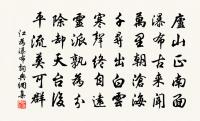 廬山正南面
瀑布古來聞
萬里朝滄海
千尋出白雲
寒聲終自遠
靈派孰為分
除却天台後
平流莫可群
江為瀑布詞典網集